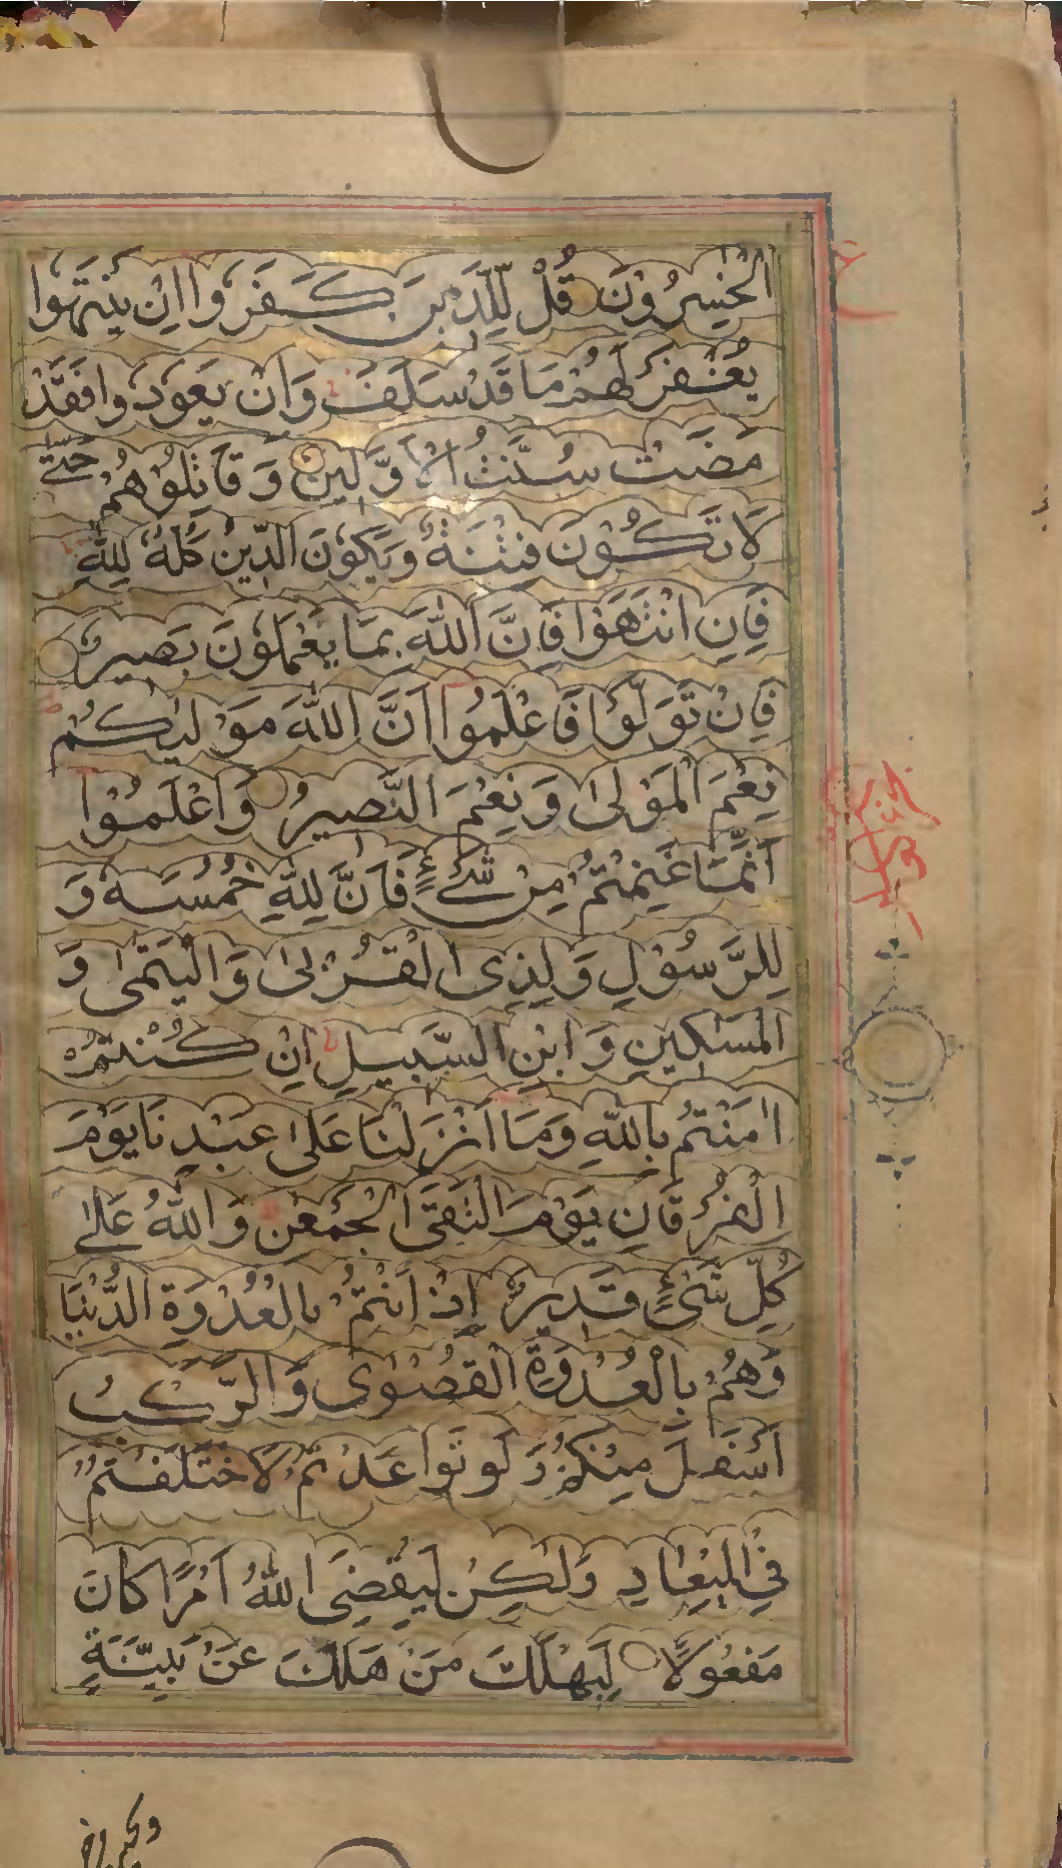 الْخٰسِرُوْنَ قُلْ لِلَّذِيْنَ كَفَرُوْا اِنْ يَنْتَهُوْا
يُغْفَرْ لَهُمْ مَا قَدْ سَلَفَ وَاِنْ يَعُوْدُوْا فَقَدْ
مَضَتْ سُنَّتُ الْاَوَّلِيْنَ وَقَاتِلُوْهُمْ حَتّٰى
لَا تَكُوْنَ فِتْنَةٌ وَيَكُوْنَ الدِّيْنُ كُلُّهٗ لِلّٰهِ
فَاِنِ انْتَهَوْا فَاِنَّ اللّٰهَ بِمَا يَعْمَلُوْنَ بَصِيْرٌ
فَاِنْ تَوَلَّوْا فَاعْلَمُوْا اَنَّ اللّٰهَ مَوْلٰىكُمْ
نِعْمَ الْمَوْلٰى وَنِعْمَ النَّصِيْرُ وَاعْلَمُوْا
اَنَّمَا غَنِمْتُمْ مِنْ شَیْءٍ فَاَنَّ لِلّٰهِ خُمُسَهٗ وَ
لِلرَّسُوْلِ وَلِذِى الْقُرْبٰى وَالْيَتٰمٰى وَ
الْمَسٰكِيْنِ وَابْنِ السَّبِيْلِ اِنْ كُنْتُمْ
اٰمَنْتُمْ بِاللّٰهِ وَمَا اَنْزَلْنَا عَلٰى عَبْدِنَا يَوْمَ
الْفُرْقَانِ يَوْمَ الْتَقَى الْجَمْعٰنِ وَاللّٰهُ عَلٰى
كُلِّ شَیْءٍ قَدِيْرٌ اِذْ اَنْتُمْ بِالْعُدْوَةِ الدُّنْيَا
وَهُمْ بِالْعُدْوَةِ الْقُصْوٰى وَالرَّكْبُ
اَسْفَلَ مِنْكُمْ وَلَوْ تَوَاعَدْتُمْ لَاخْتَلَفْتُمْ
فِى الْمِيْعَادِ وَلٰكِنْ لِيَقْضِىَ اللّٰهُ اَمْرًا كَانَ
مَفْعُوْلًا لِيَهْلِكَ مَنْ هَلَكَ عَنْ بَيِّنَةٍ